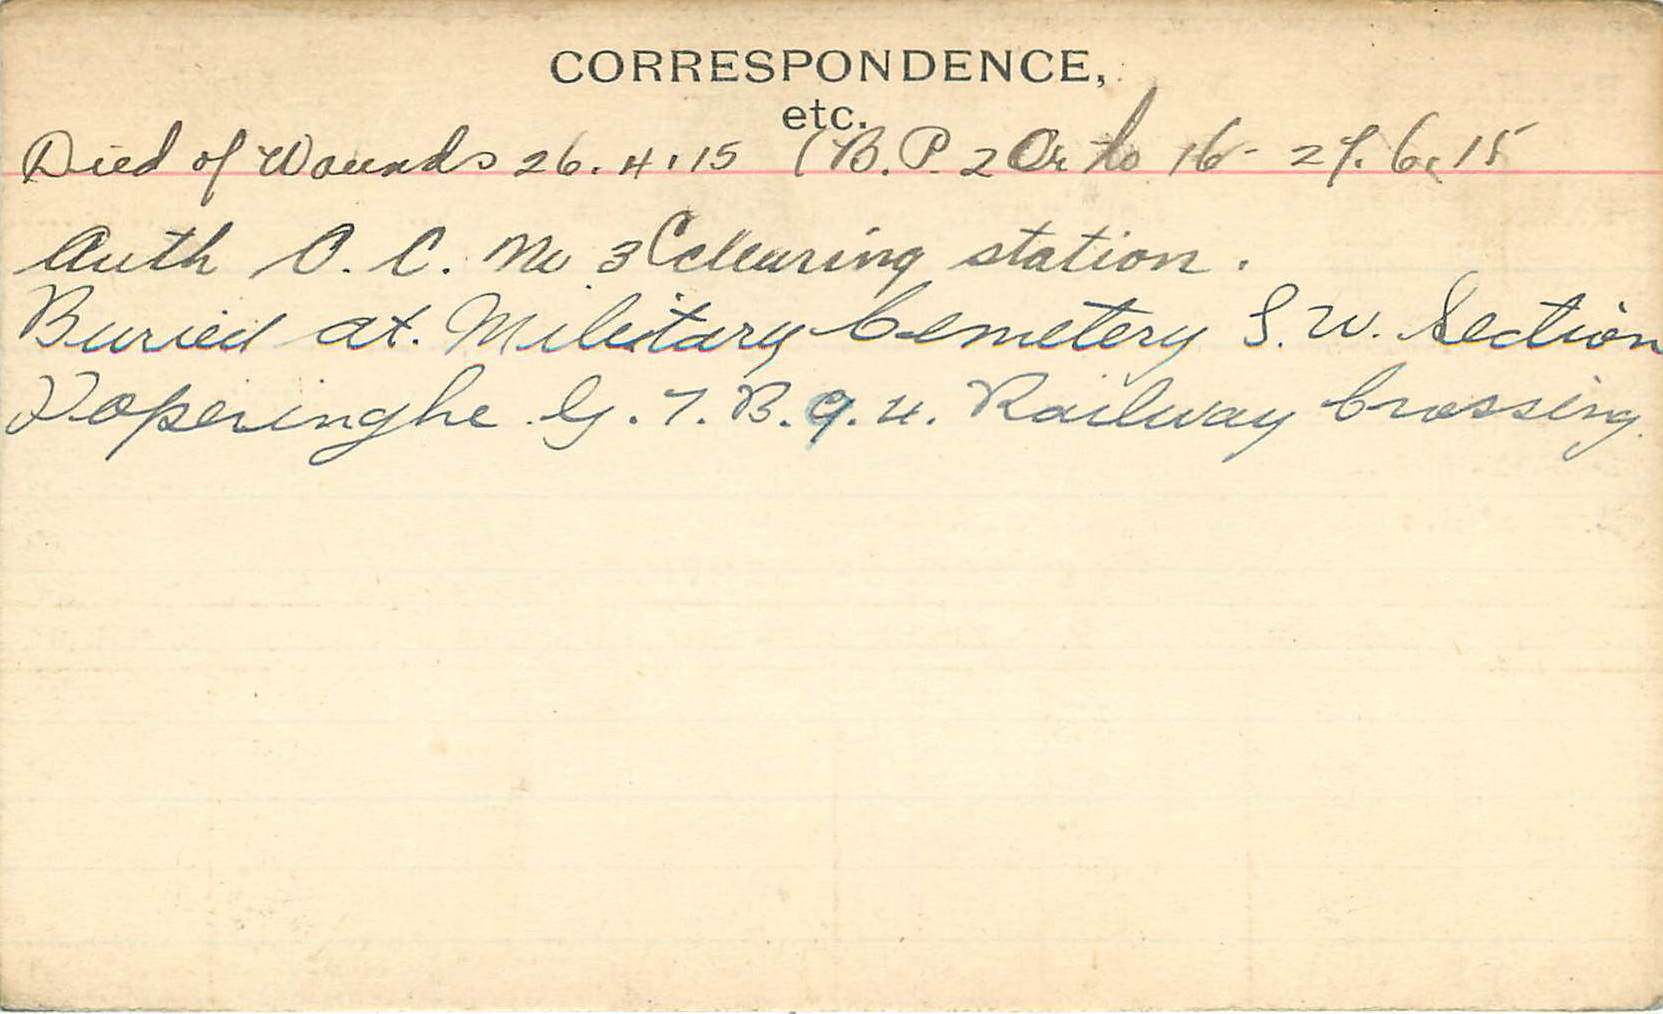 CORRESPONDENCE,
etc.
Died of Wounds 26.4.15 (B.P. 2 Or No 16 - 27.6.15
Auth O.C. No 3 Cclearing station.
Buried at. Military Cemetery S.W. Section
Poperinghe G.7.B.9.4. Railway Crossing.